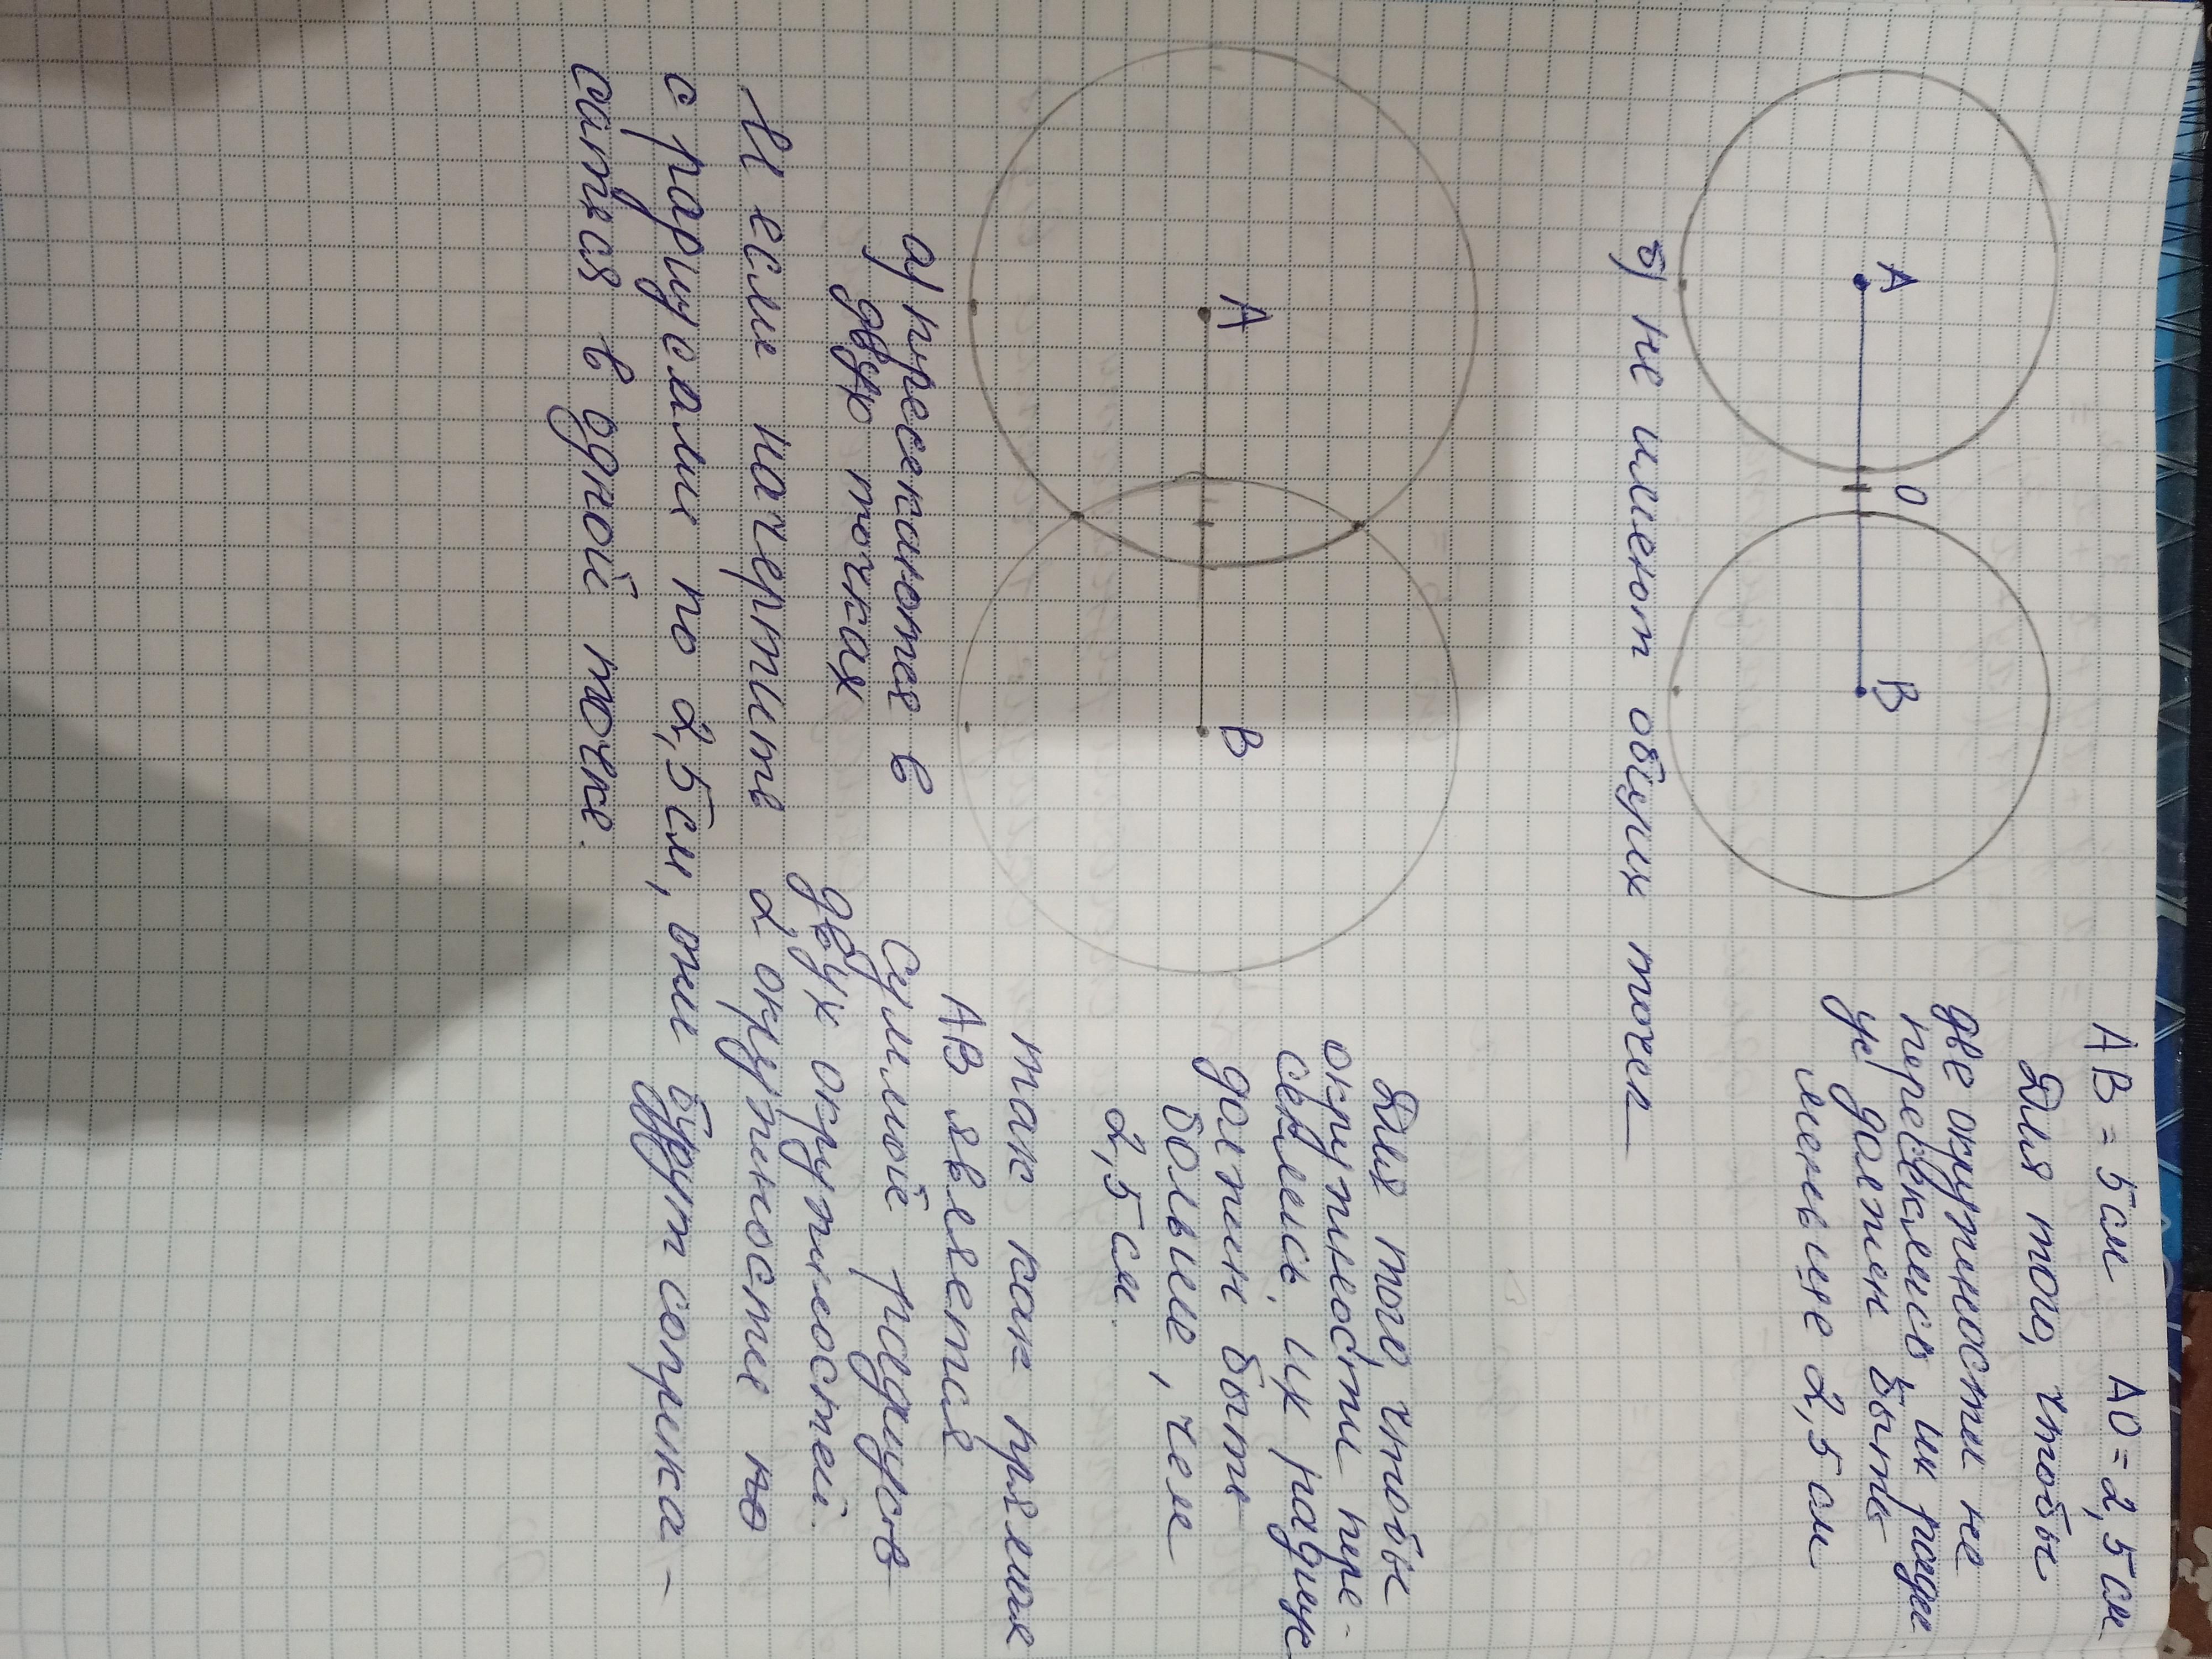 AB = 5см AO = 2,5 см
Для того, чтобы
две окружности не
пересеклись их радиу
ус должен быть
меньше 2,5 см
A O B
б) не имеют общих точек
Для того, чтобы
окружности пере-
секлись, их радиус
должен быть
больше, чем
2,5 см.
A B
так как прямая
AB является
суммой радиусов
двух окружностей.
а) пересекаются в
двух точках
И если начертить 2 окружности по
с радиусами по 2,5 см, они будут соприка-
саться в одной точке.